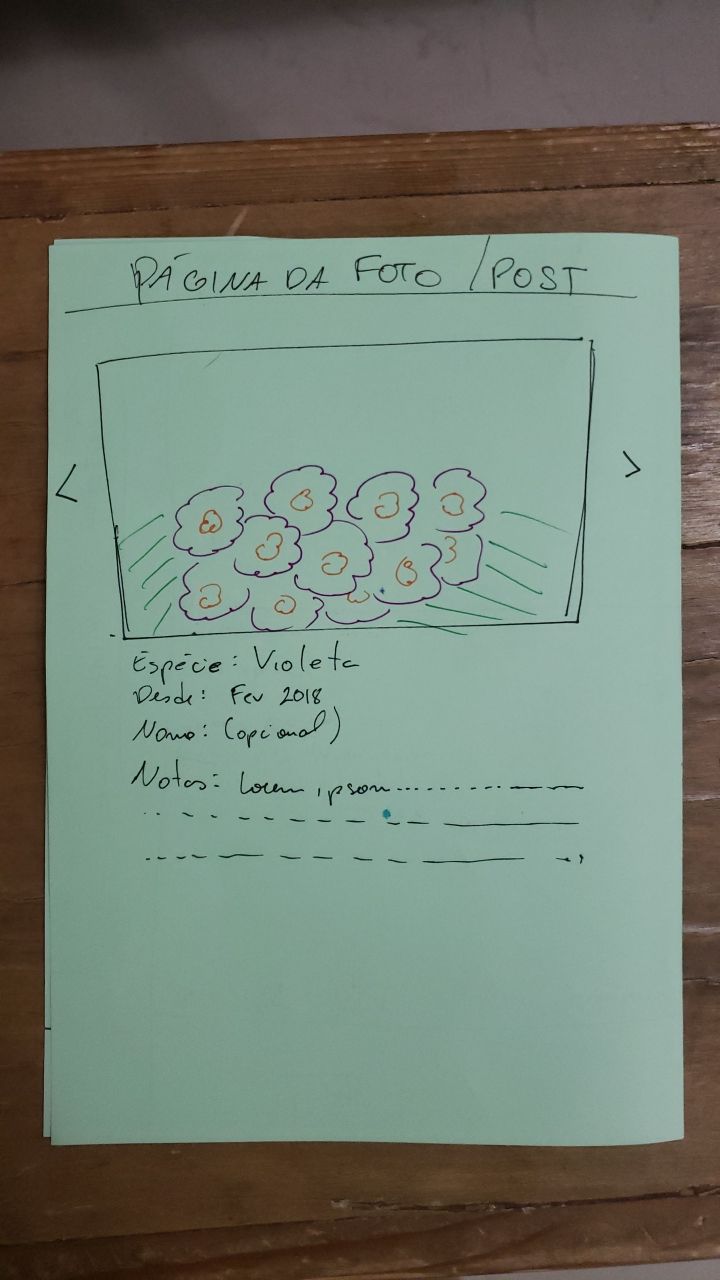 PÁGINA DA FOTO / POST
< >
Espécie: Violeta
Desde: Fev 2018
Nome: (opcional)
Notas: Lorem ipson